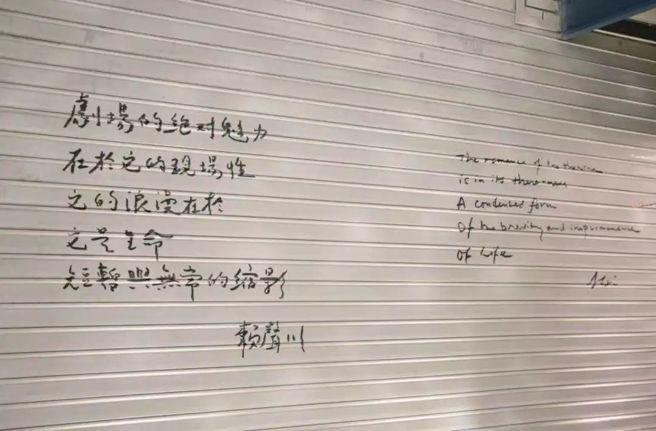 劇場的絕对魅力
在於它的現場性
它的浪漫在於
它是生命
短暫與無常的縮影
賴聲川
The romance of the theatre
is in its thereness
A condensed form
of the brevity and impermanence
of Life